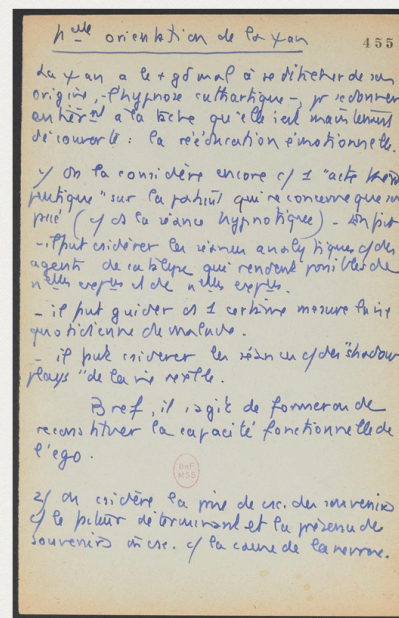 nelle orientation de la ψan
455
La ψan a le + gd mal à se détacher de son
origine, - l'hypnose cathartique -, pr se donner
entièrt à la tâche qu'elle s'est maintenant
découverte : la rééducation émotionnelle.
1/ On la considère encore c/ 1 "acte théra
peutique" sur le patient qui ne concerne que son
psyché (c/ ds la séance hypnotique) - En fait
- il faut csidérer les séances analytiques c/ des
agents de catalyse qui rendent possibles de
nelles exp et de nelles exp.
- il faut guider ds 1 certaine mesure la vie
quotidienne du malade.
- il faut csidérer les séances c/ des "shadow
plays" de la vie réelle.
Bref, il s'agit de former ou de
reconstituer la capacité fonctionnelle de
l'ego.
BnF
MSS
2/ On csidère la prise de csc. des souvenirs
c/ le facteur déterminant et la présence de
souvenirs incsc. c/ la cause de la névrose.